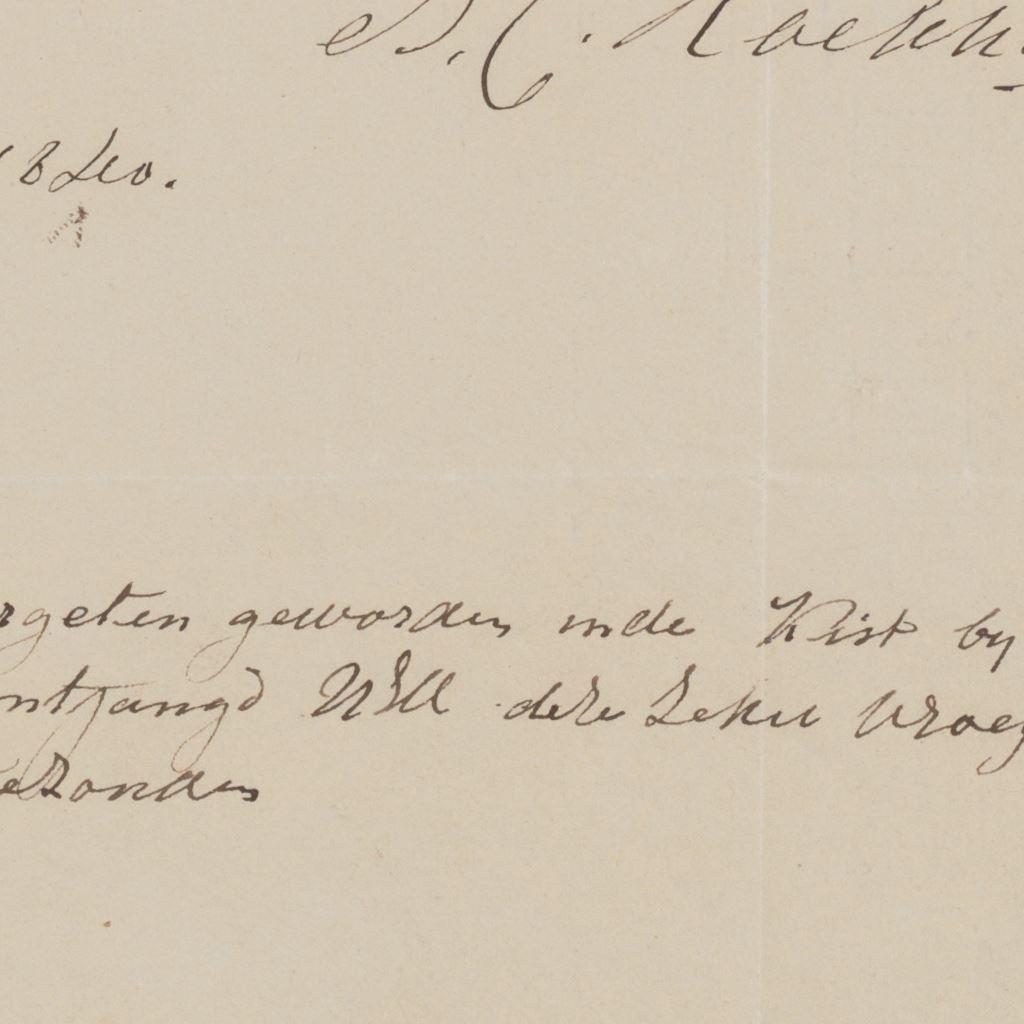 B. C. Koekk
rgeten geworden inde Kist by
ntfangd UEd deze zeker vroeg
ezonden